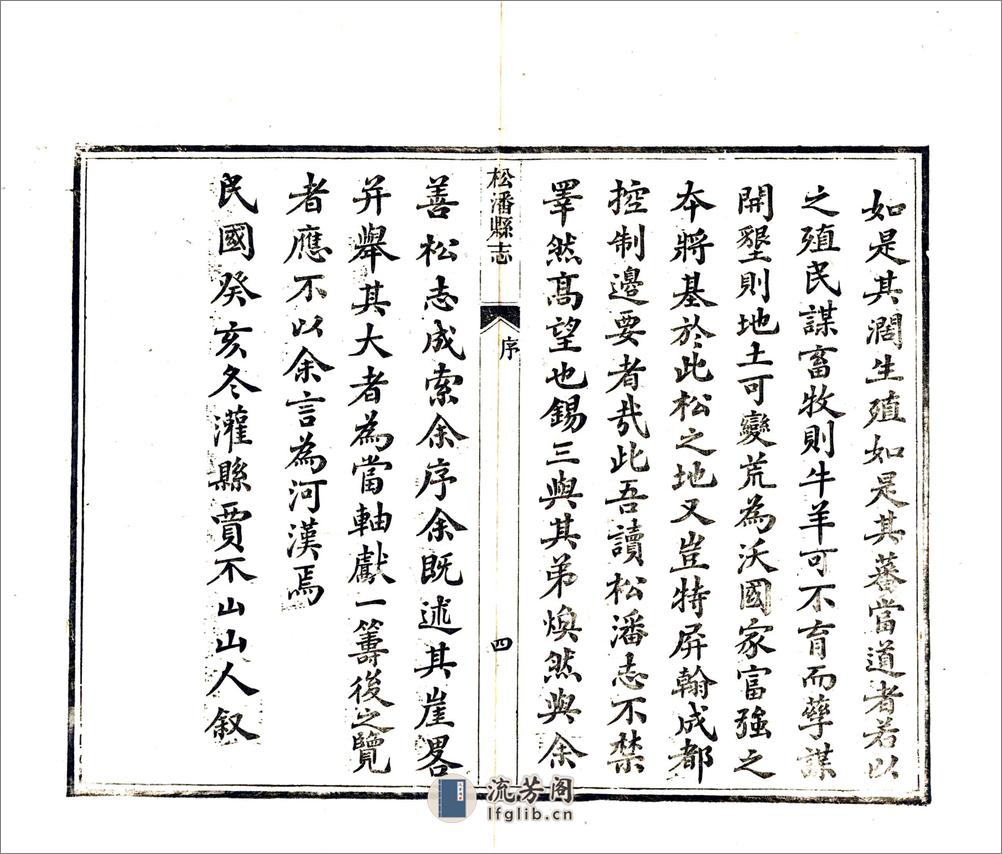 如是其濶生殖如是其蕃當道者若以
之殖民謀畜牧則牛羊可不育而孳謀
開墾則地土可變荒為沃國家富強之
本將基於此松之地又豈特屏翰成都
控制邊要者㢤此吾讀松潘志不禁
睪然高望也錫三與其弟煥然與余
松潘縣志
序
四
善松志成索余序余既述其崖畧
并舉其大者為當軸獻一籌後之覽
者應不以余言為河漢焉
民國癸亥冬灌縣賈不山山人叙
流芳阁
lfglib.cn